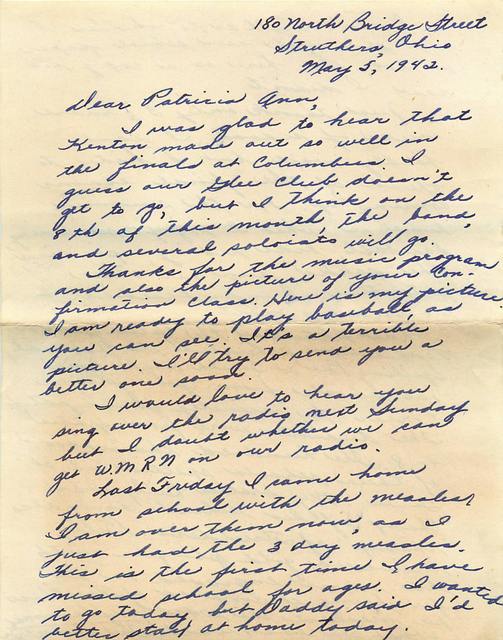 180 North Bridge Street
Struthers, Ohio
May 5, 1942.
Dear Patricia Ann,
I was glad to hear that
Kenton made out so well in
the finals at Columbus. I
guess our Glee Club doesn't
get to go, but I think on the
8th of this month, the band,
and several soloists will go.
Thanks for the music program
and also the picture of your Con-
firmation Class. Here is my picture
I am ready to play baseball, as
you can see. It's a terrible
picture. I'll try to send you a
better one soon.
I would love to hear you
sing over the radio next Sunday
but I doubt whether we can
get W.M.R.N on our radio.
Last Friday I came home
from school with the measles!
I am over them now, as I
just had the 3 day measles.
This is the first time I have
missed school for ages. I wanted
to go today but Daddy said I'd
better stay at home today.